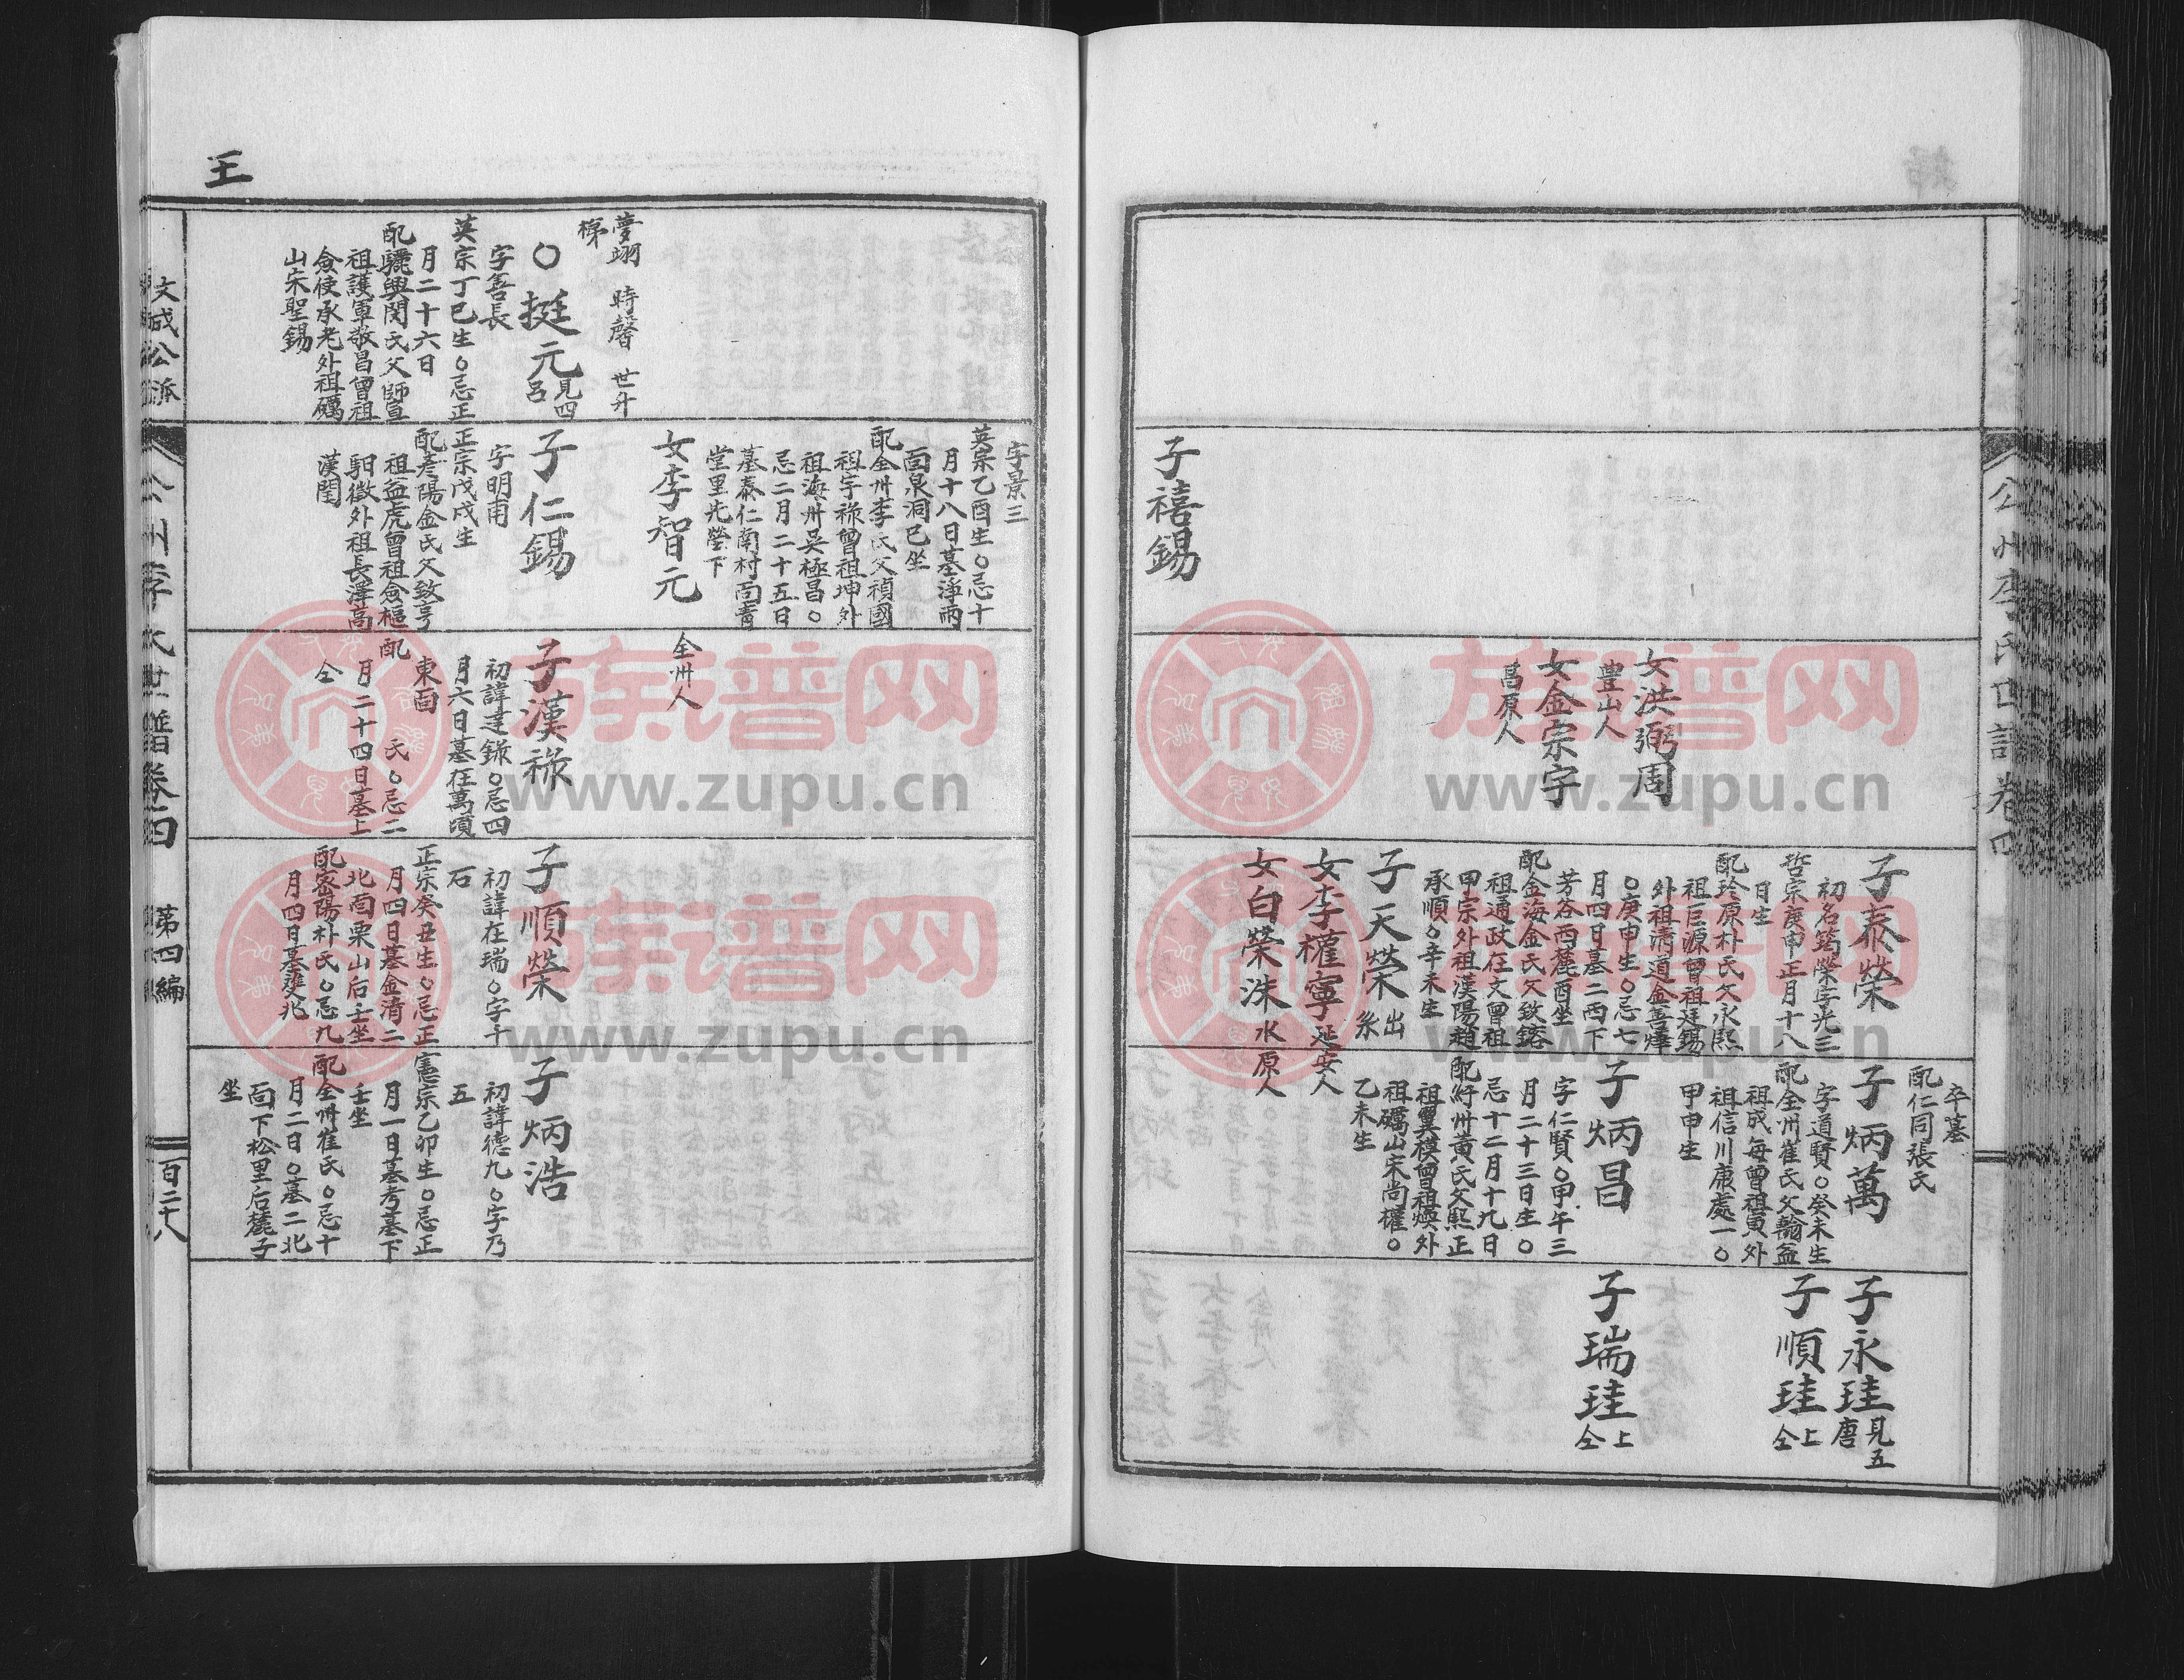 子禧錫
女洪弼周
豊山人
女金宗宇
昌原人
子泰榮
初名篶榮字光三
哲宗庚申正月十八
日生
配珍原朴氏父永熙
祖巨源曾祖廷錫
外祖淸道金善燁
○庚申生○忌七
月四日墓二西下
芳谷西麓酉坐
配金海金氏父欽鎔
祖通政在文曾祖
甲宗外祖漢陽趙
承順○辛未生
子天榮出系
女李權寧延安人
女白榮洙水原人
卒墓
配仁同張氏
子炳萬
字道賢○癸未生
配全州崔氏父翰益
祖成每曾祖寅外
祖信川康處一○
甲申生
子炳昌
字仁賢○甲午三
月二十三日生○
忌十二月十九日
配紆州黃氏父熙正
祖翼模曾祖煥外
祖礪山宋尚權○
乙未生
子永珪見五唐
子順珪上仝
子瑞珪上仝
公州李氏世譜卷四
王
夢翊 時馨 世升
梯
○挺元見四呂
字善長
英宗丁巳生○忌正
月二十六日
配驪興閔氏父師宣
祖護軍敬昌曾祖
僉使承老外祖礪
山宋聖錫
字景三
英宗乙酉生○忌十
月十八日墓淨雨
面泉洞巳坐
配全州李氏父禎國
祖宇祿曾祖坤外
祖海州吳極昌○
忌二月二十五日
墓泰仁南村面靑
堂里先塋下
女李智元
全州人
子仁錫
字明甫
正宗戊戌生
配彥陽金氏父致亨
祖益虎曾祖僉樞
馹徵外祖長澤高
漢閏
子漢祿
初諱達錄○忌四
月六日墓在萬頃
東面
配 氏○忌二
月二十四日墓上
仝
子順榮
初諱在瑞○字千
石
正宗癸丑生○忌正
月四日墓金溝二
北面栗山后壬坐
配密陽朴氏○忌九
月四日墓雙北
子炳浩
初諱德九○字乃
五
憲宗乙卯生○忌正
月一日墓考墓下
壬坐
配全州崔氏○忌十
月二日○墓二北
面下松里后麓子
坐
文成公派
公州李氏世譜卷四 第四編
百二十八
族谱网
www.zupu.cn
族谱网
www.zupu.cn
族谱网
www.zupu.cn
族谱网
www.zupu.cn